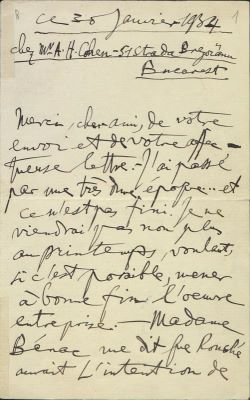 8 1
ce 30 Janvier 1934
chez Mr A. H. Cohen - 51 Strada
Bucarest
Merci, cher ami, de votre
envoi et de votre affec-
tueuse lettre. - J'ai passé
par une très dure époque... et
ce n'est pas fini. Je ne
viendrai pas non plus
au printemps, voulant,
si c'est possible, mener
à bonne fin l'oeuvre
entreprise. - Madame
Bénac me dit que Rouché
aurait l'intention de